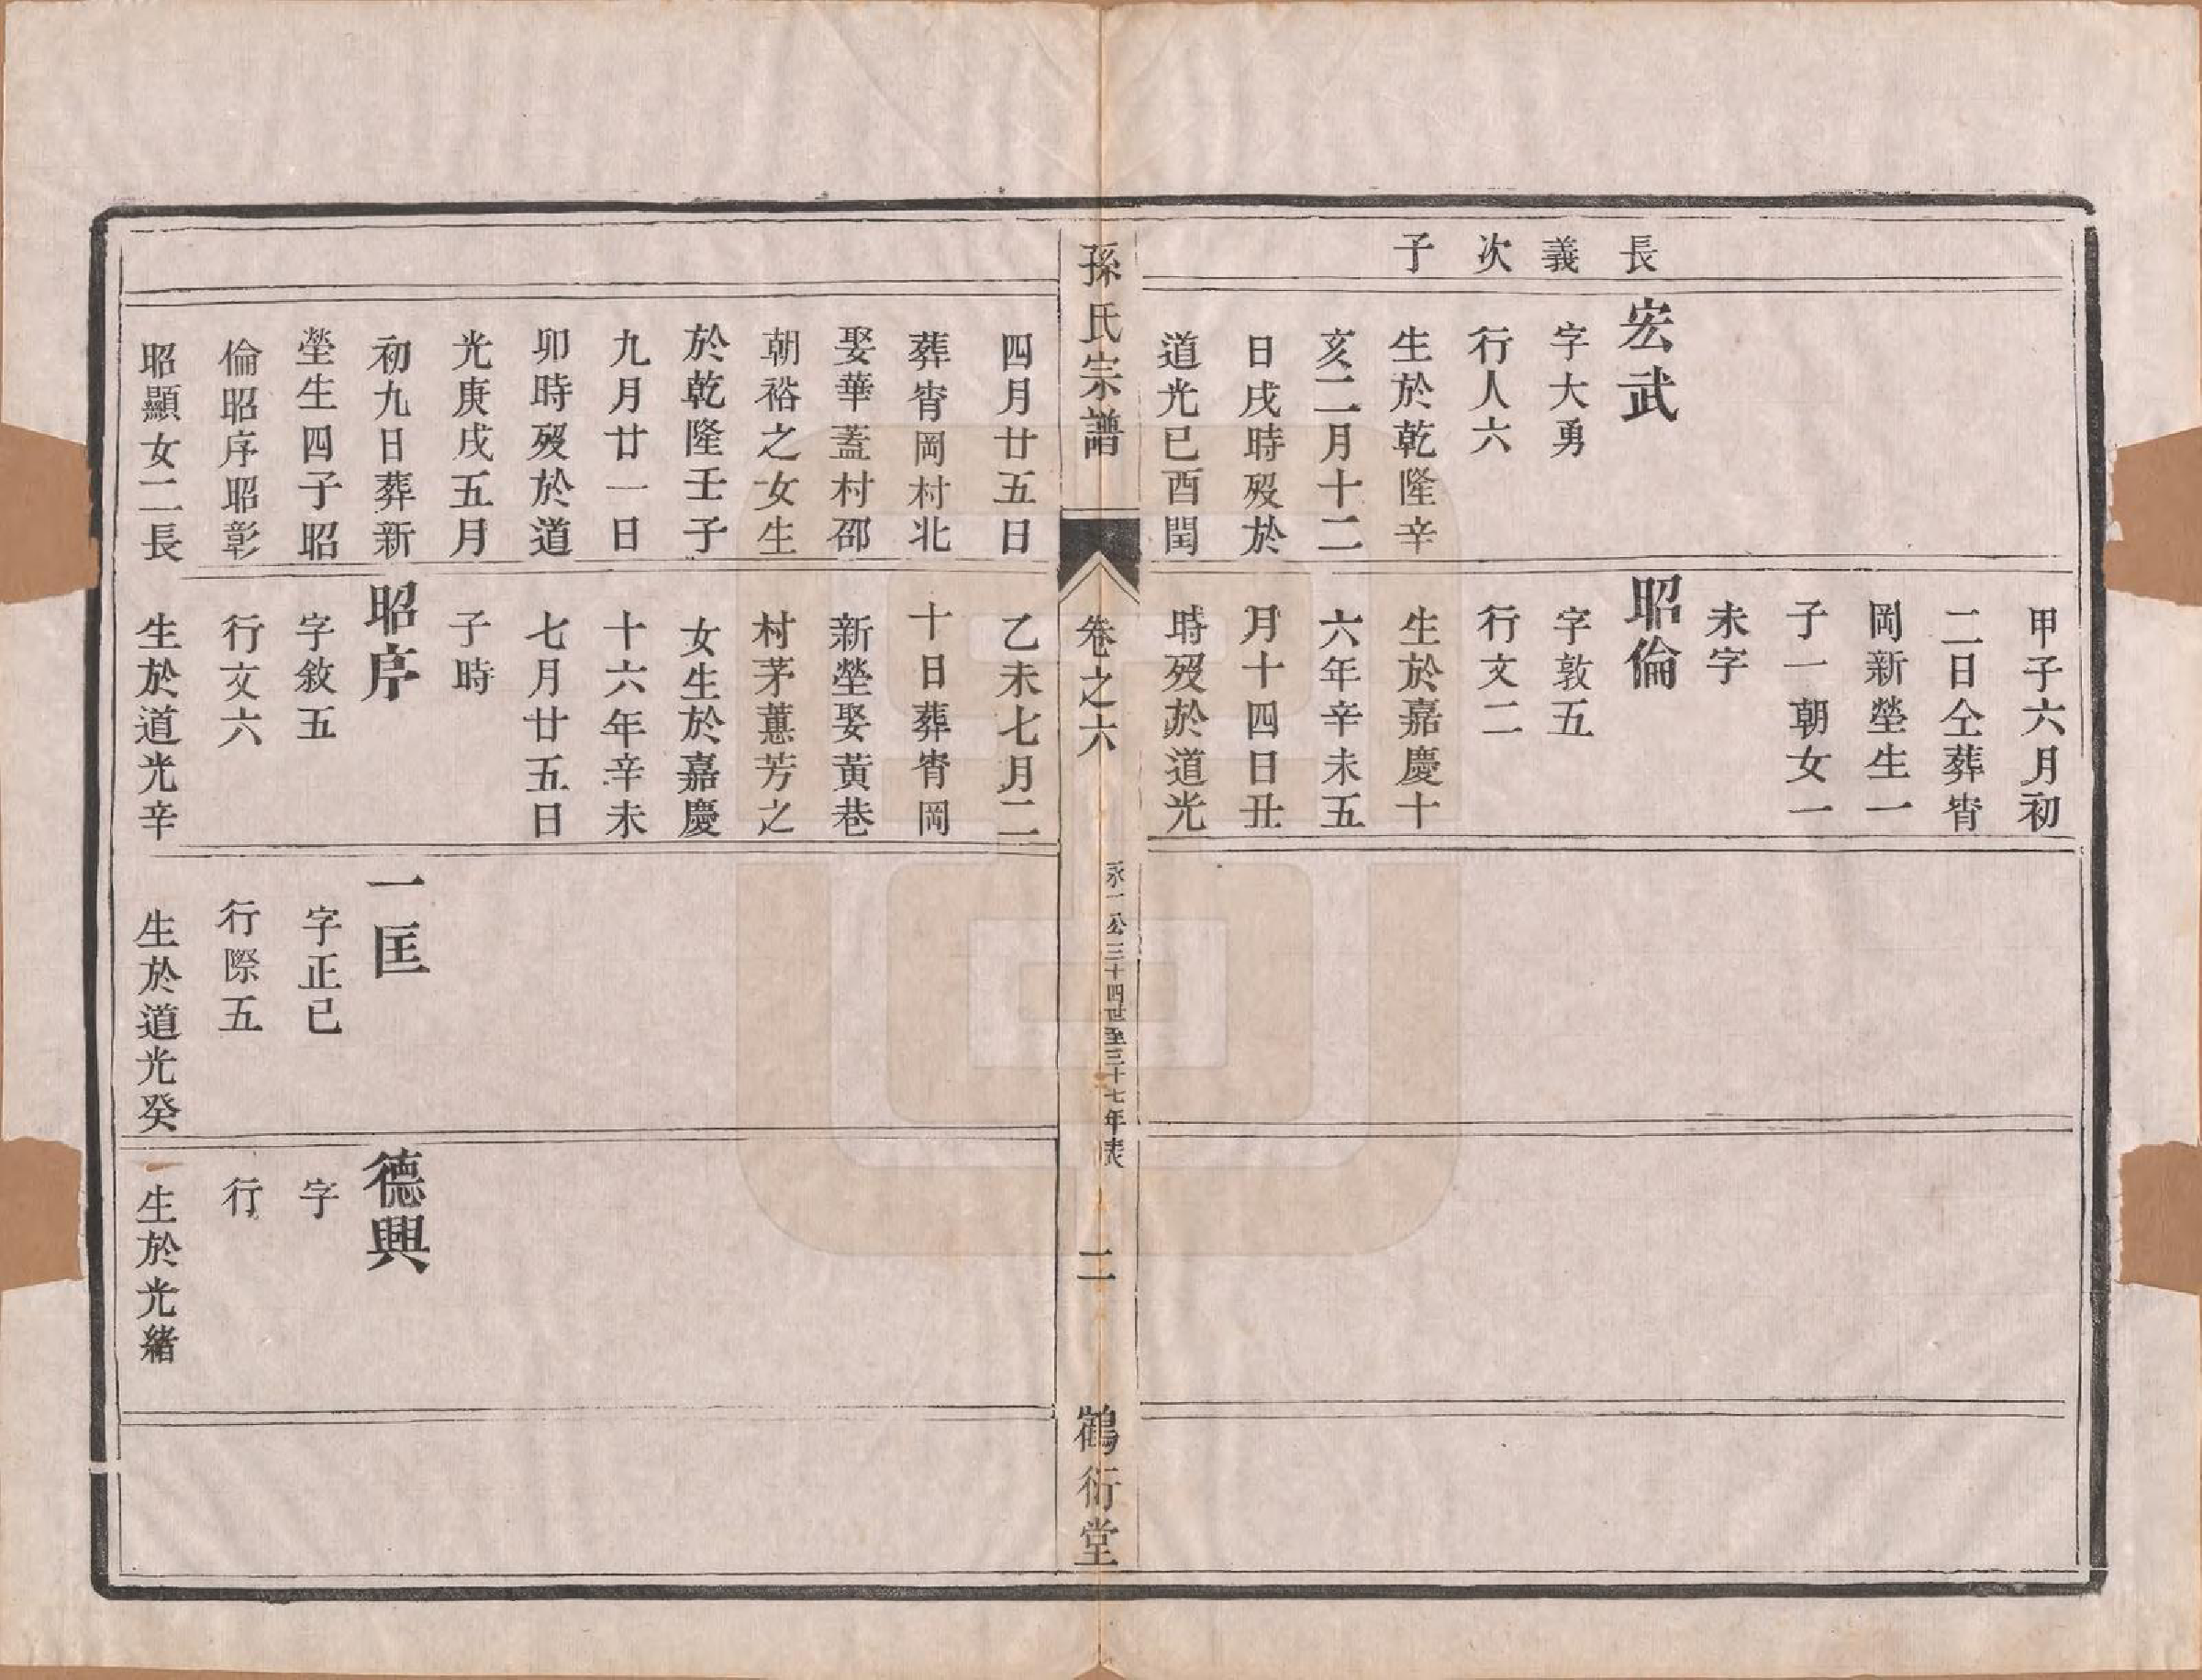 長
義
次
子
宏武
字大勇
行人六
生於乾隆辛
亥二月十二
日戌時殁於
道光已酉閏
甲子六月初
二日仝葬㟧
岡新塋生一
子一朝女一
未字
昭倫
字敦五
行文二
生於嘉慶十
六年辛未五
月十四日丑
時殁於道光
孫氏宗譜
卷之六
永一公三十四世至三十七年表
二
鶴衍堂
四月廿五日
葬㟧岡村北
娶華蓋村邵
朝裕之女生
於乾隆壬子
九月廿一日
卯時殁於道
光庚戌五月
初九日葬新
塋生四子昭
倫昭序昭彰
昭顯女二長
乙未七月二
十日葬㟧岡
新塋娶黃巷
村茅蕙芳之
女生於嘉慶
十六年辛未
七月廿五日
子時
昭序
字敘五
行文六
生於道光辛
一匡
字正已
行際五
生於道光癸
德興
字
行
生於光緒